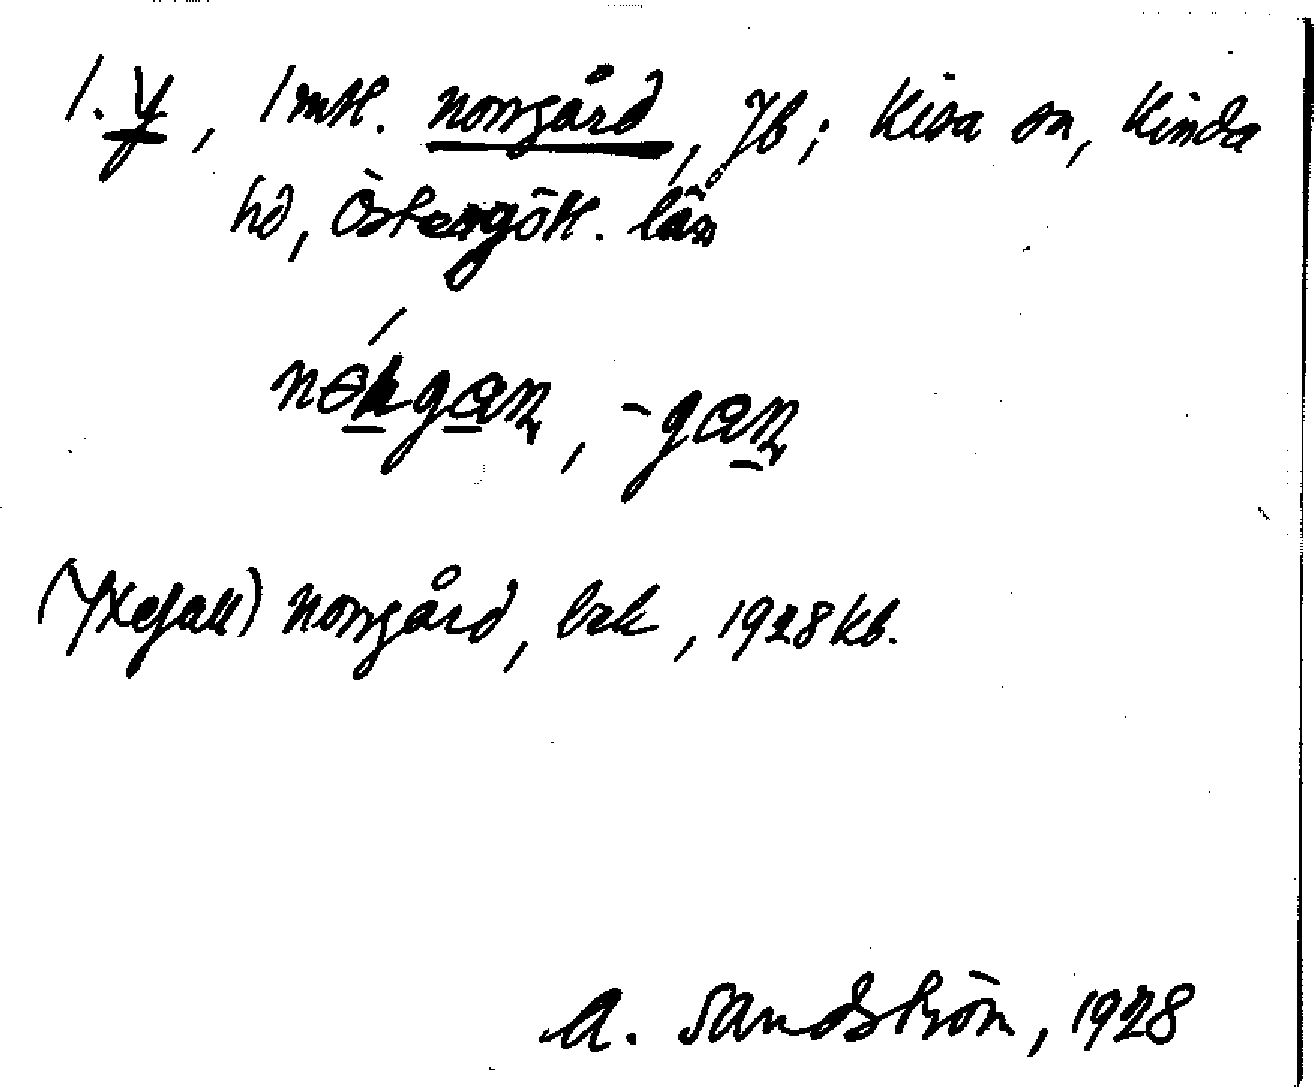 1. Y, 1 mtl. Norrgård, Jb; Kisa sn, Kinda
hd, Östergötl. län
(Yxefall) Norrgård, bek, 1928 kb.
A. Sandström, 1928